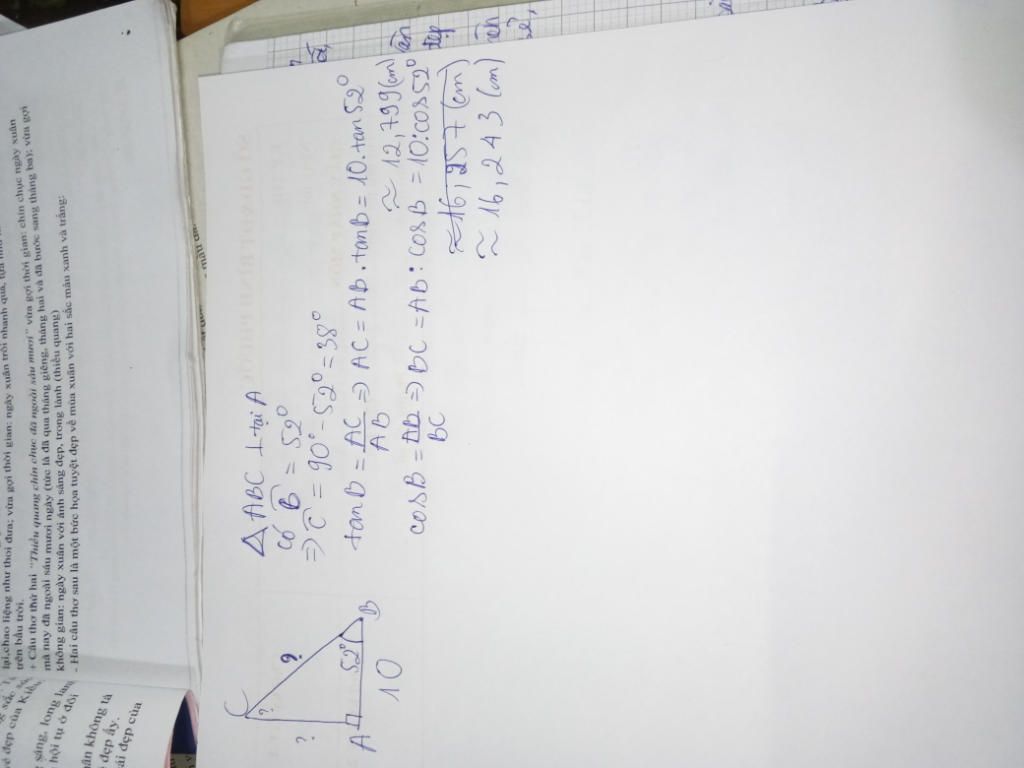 lại,chao liệng như thoi đưa; vừa gợi thời gian: ngày xuân trôi nhanh quá, tựa như
trên bầu trời.
+ Câu thơ thứ hai "Thiều quang chín chục đã ngoài sáu mươi" vừa gợi thời gian: chín chục ngày xuân
mà nay đã ngoài sáu mươi ngày (tức là đã qua tháng giêng, tháng hai và đã bước sang tháng ba); vừa gợi
không gian: ngày xuân với ánh sáng đẹp, trong lành (thiều quang)
- Hai câu thơ sau là một bức họa tuyệt đẹp về mùa xuân với hai sắc màu xanh và trắng:
vẻ đẹp của Kiều
sáng, long lan
hội tụ ở đôi
hân không là
đẹp ấy.
ái đẹp của
C
?
?
?
A
52°
B
10
△ABC ⊥ tại A
có B̂ = 52°
⇒ Ĉ = 90° - 52° = 38°
tanB = AC/AB ⇒ AC = AB . tanB = 10.tan52°
≈ 12,799 (cm)
cosB = AB/BC ⇒ BC = AB : cosB = 10:cos52°
≈ 16,257 (cm)
≈ 16,243 (cm)